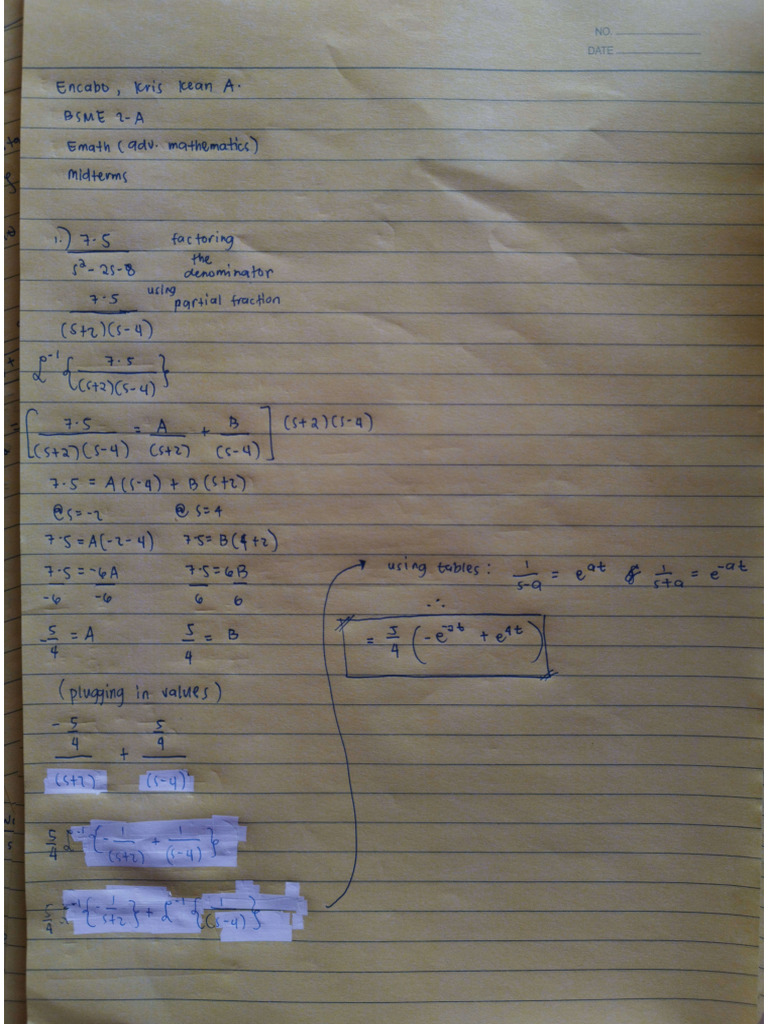 NO.
DATE
Encabo, Kris Kean A.
BSME 2-A
Emath (adv. mathematics)
Midterms
1.) 7.5 / s² - 2s - 8 factoring the denominator
7.5 / (s+2)(s-4) using partial fraction
ℒ⁻¹ { 7.5 / (s+2)(s-4) }
= [ 7.5 / (s+2)(s-4) = A / (s+2) + B / (s-4) ] (s+2)(s-4)
7.5 = A(s-4) + B(s+2)
@s=-2 @s=4
7.5 = A(-2-4) 7.5 = B(4+2)
7.5 / -6 = -6A / -6 7.5 / 6 = 6B / 6
-5/4 = A 5/4 = B
(plugging in values)
-5/4 / (s+2) + 5/4 / (s-4)
5/4 ℒ⁻¹ { -1/(s+2) + 1/(s-4) }
5/4 ℒ⁻¹ { -1/s+2 } + ℒ⁻¹ { 1/(s-4) }
using tables: 1/s-a = e^at & 1/s+a = e^-at
∴
= 5/4 ( -e^-2t + e^4t )